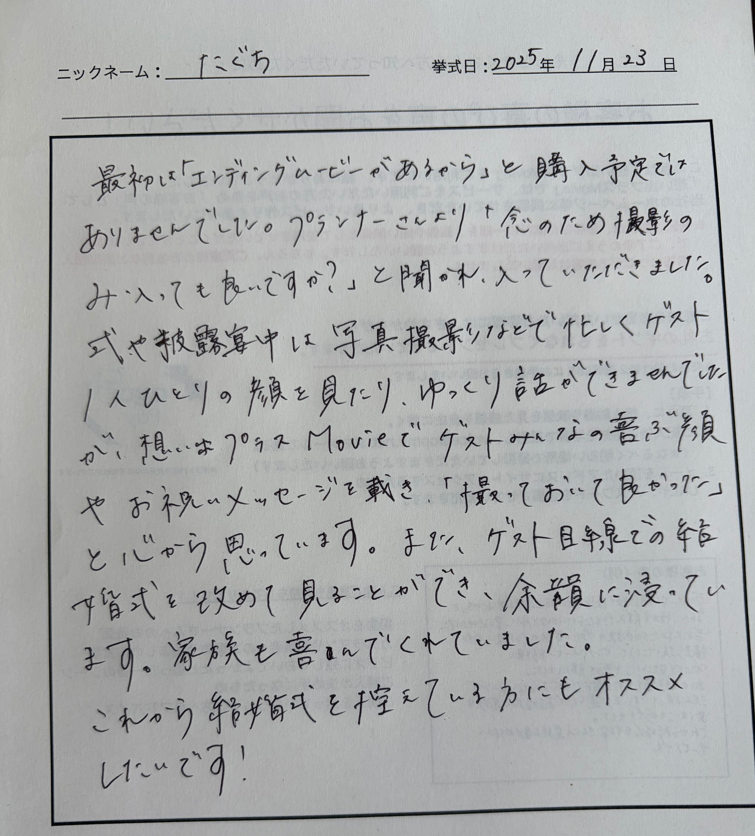 ニックネーム： たぐち 挙式日：2025年 11月 23日
最初は「エンディングムービーがあるから」と購入予定では
ありませんでした。プランナーさんより「念のため撮影の
み入っても良いですか？」と聞かれ、入っていただきました。
式や披露宴中は写真撮影などで忙しくゲスト
1人ひとりの顔を見たり、ゆっくり話ができませんでした
が、想いはプラスMovieでゲストみんなの喜ぶ顔
やお祝いメッセージを載き、「撮っておいて良かった」
と心から思っています。また、ゲスト目線での結
婚式を改めて見ることができ、余韻に浸ってい
ます。家族も喜んでくれていました。
これから結婚式を控えている方にもオススメ
したいです！